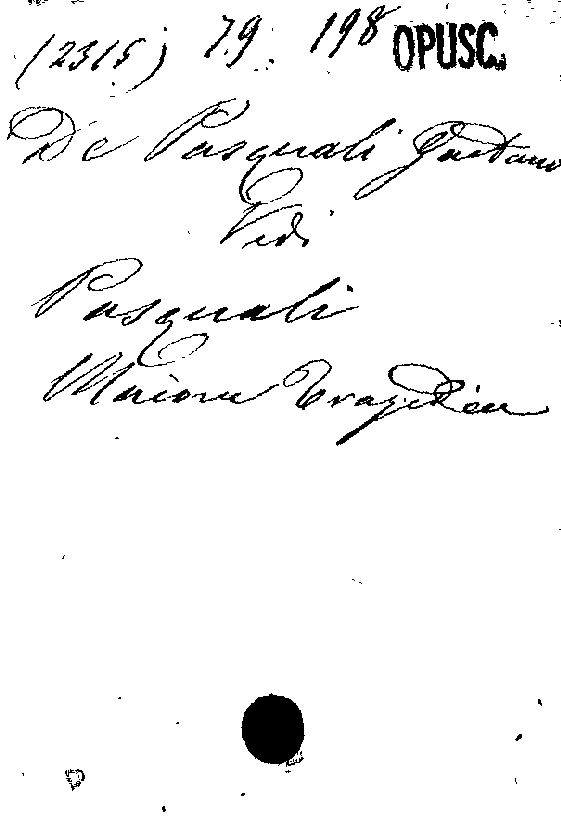 (2315) 79. 198 OPUSC.
De Pasquali Gaetano
Vedi
Pasquali
Tragedia